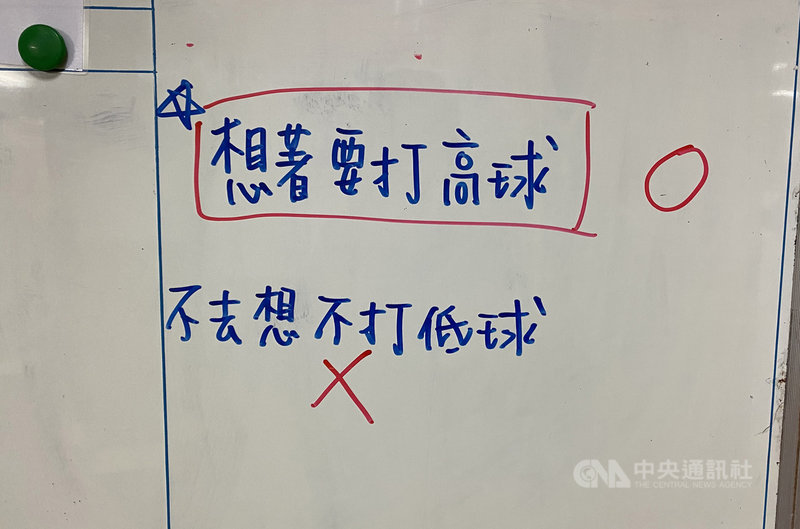 想著要打高球
不去想不打低球
CNA 中央通訊社
THE CENTRAL NEWS AGENCY